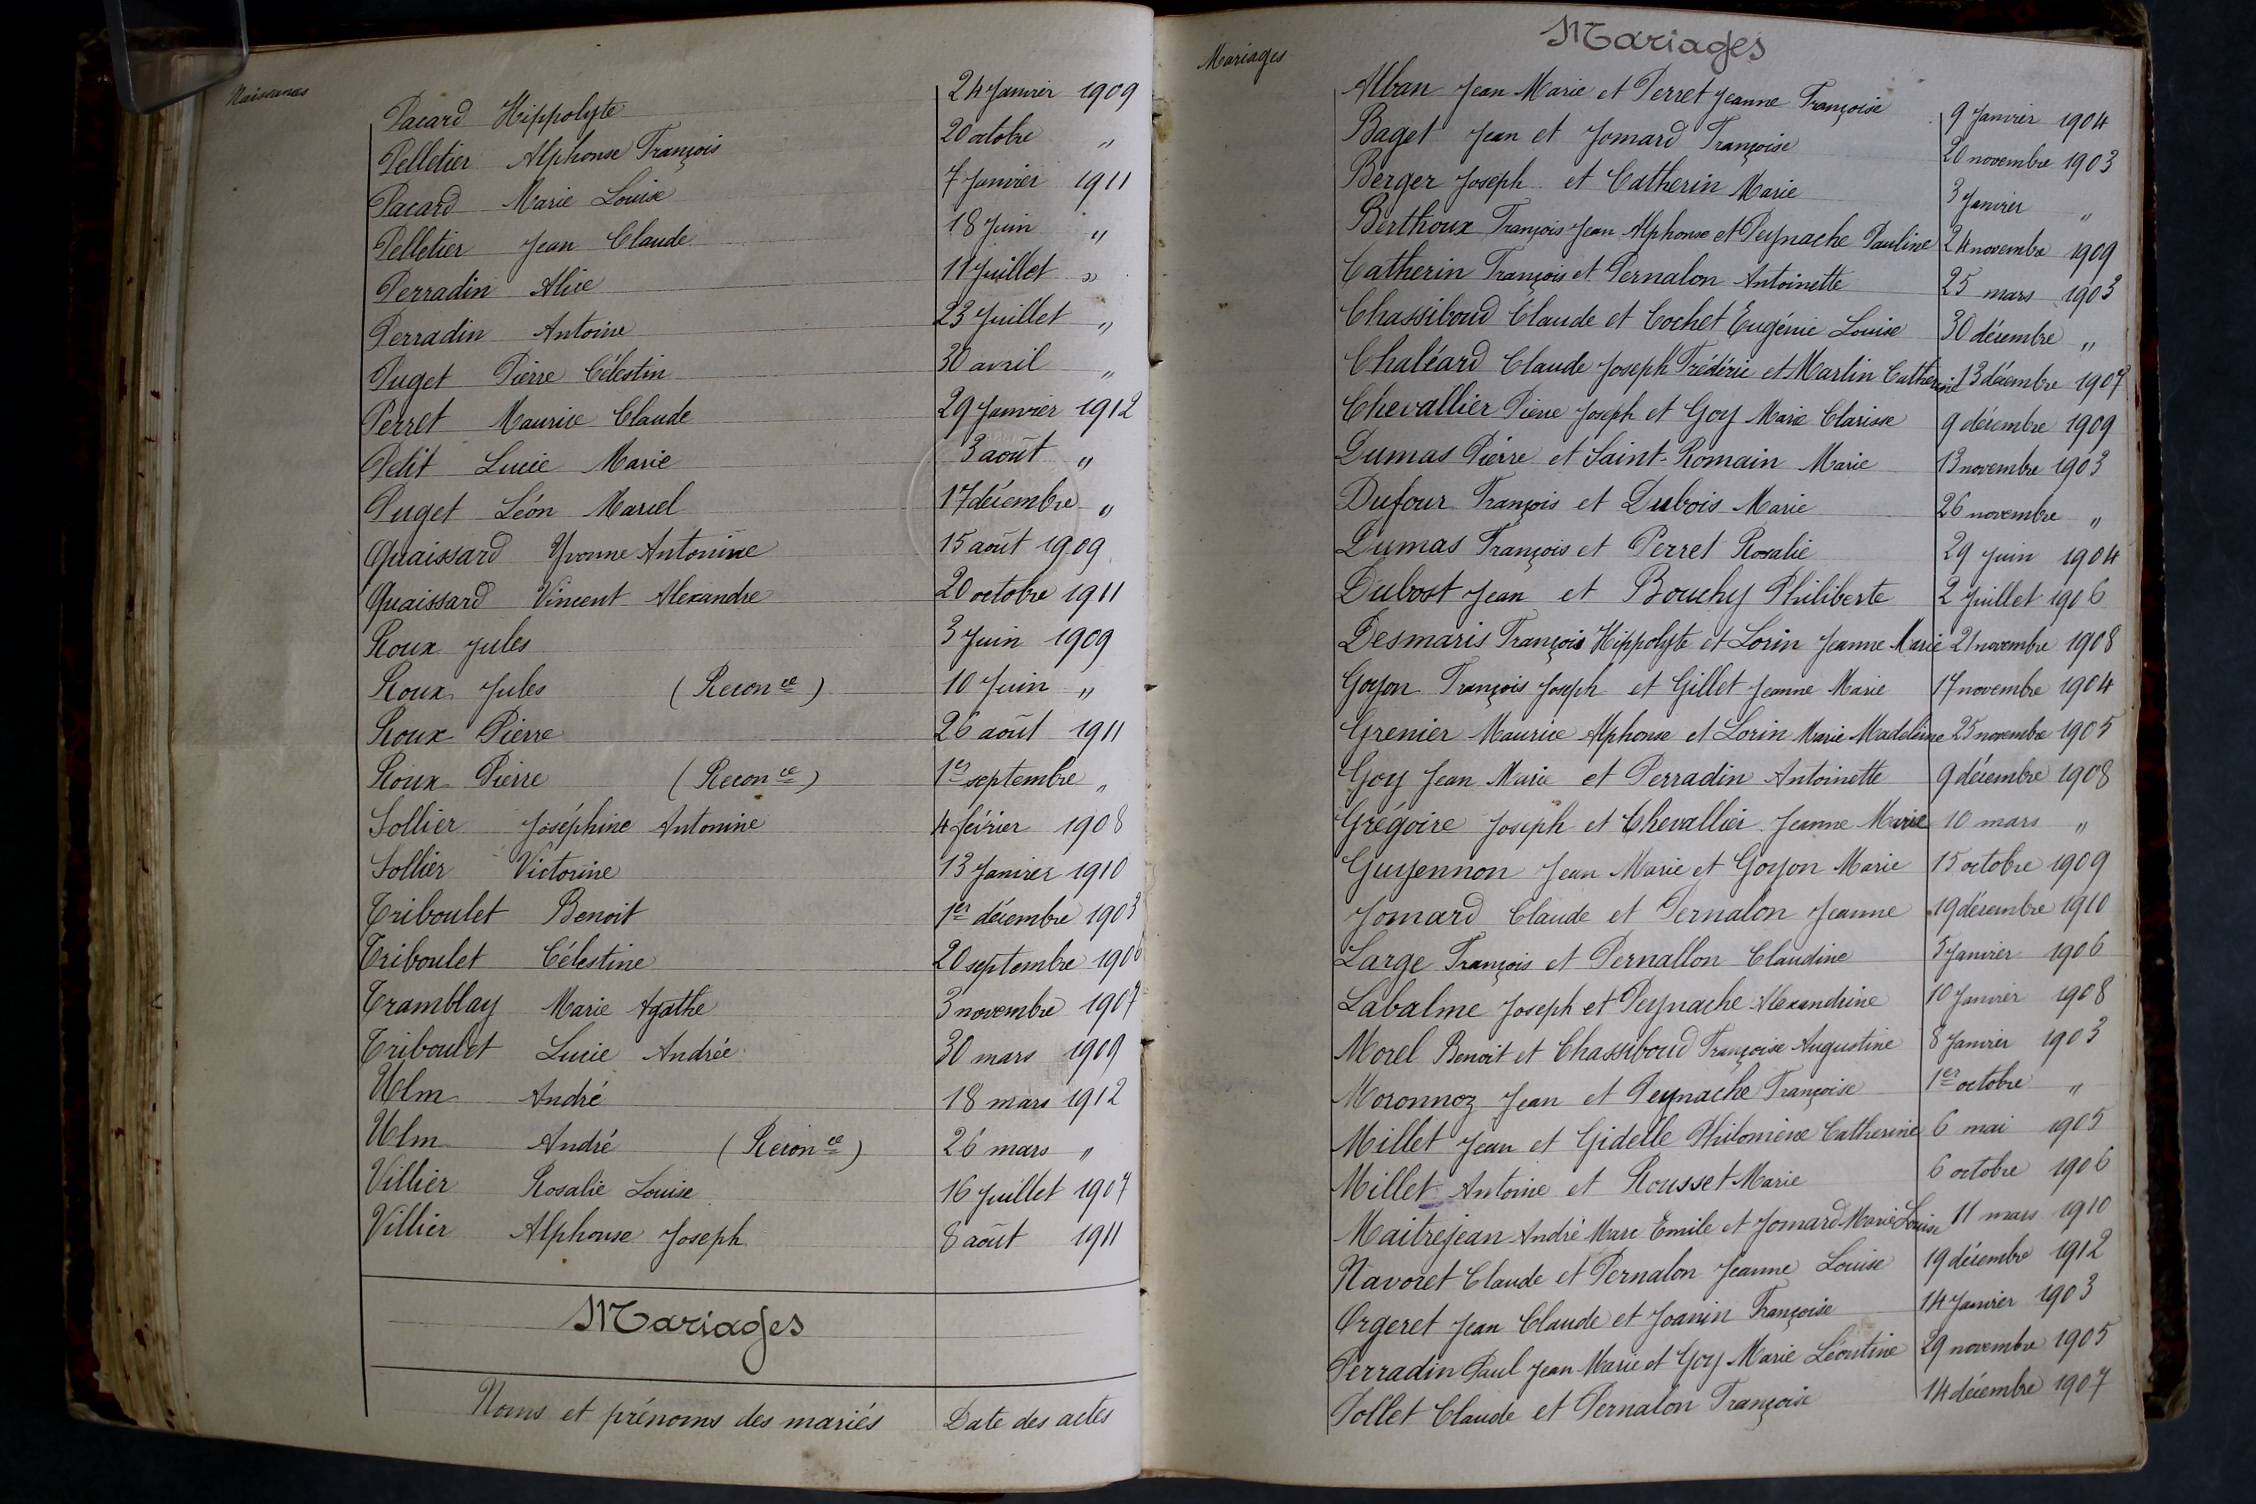 Naissances
Pacard Hippolyte 24 Janvier 1909
Pelletier Alphonse François 20 octobre "
Pacard Marie Louise 7 Janvier 1911
Pelletier Jean Claude 18 Juin "
Perradin Alice 11 Juillet "
Perradin Antoine 23 Juillet "
Puget Pierre Célestin 30 avril "
Perret Maurice Claude 29 Janvier 1912
Petit Lucie Marie 3 août "
Puget Léon Marcel 17 décembre "
Quaissard Yvonne Antonine 15 août 1909
Quaissard Vincent Alexandre 20 octobre 1911
Roux Jules 3 Juin 1909
Roux Jules (Reconce) 10 Juin "
Roux Pierre 26 août 1911
Roux Pierre (Reconce) 1er septembre "
Sollier Joséphine Antonine 4 février 1908
Sollier Victorine 13 Janvier 1910
Triboulet Benoit 1er décembre 1903
Triboulet Célestine 20 septembre 1906
Tramblay Marie Agathe 3 novembre 1907
Triboulet Lucie Andrée 30 mars 1909
Ulm André 18 mars 1912
Ulm André (Reconce) 26 mars "
Villier Rosalie Louise 16 Juillet 1907
Villier Alphonse Joseph 8 août 1911
Mariages
Noms et prénoms des mariés Date des actes
Mariages
Mariages
Alban Jean Marie et Perret Jeanne Françoise 9 Janvier 1904
Baget Jean et Jomard Françoise 20 novembre 1903
Berger Joseph et Catherin Marie 3 Janvier "
Berthoux François Jean Alphonse et Peynache Pauline 24 novembre 1909
Catherin François et Pernalon Antoinette 25 mars 1903
Chassiboud Claude et Cochet Eugénie Louise 30 décembre "
Chaléard Claude Joseph Frédéric et Marlin Catherine 13 décembre 1907
Chevallier Pierre Joseph et Goy Marie Clarisse 9 décembre 1909
Dumas Pierre et Saint-Romain Marie 13 novembre 1903
Dufour François et Dubois Marie 26 novembre "
Dumas François et Perret Rosalie 29 Juin 1904
Dubost Jean et Bouchy Philiberte 2 Juillet 1906
Desmaris François Hippolyte et Lorin Jeanne Marie 21 novembre 1908
Goyon François Joseph et Gillet Jeanne Marie 17 novembre 1904
Grenier Maurice Alphonse et Lorin Marie Madeleine 25 novembre 1905
Goy Jean Marie et Perradin Antoinette 9 décembre 1908
Grégoire Joseph et Chevallier Jeanne Marie 10 mars "
Guyennon Jean Marie et Goyon Marie 15 octobre 1909
Jomard Claude et Pernalon Jeanne 19 décembre 1910
Large François et Pernallon Claudine 5 Janvier 1906
Labalme Joseph et Peynache Alexandrine 10 Janvier 1908
Morel Benoit et Chassiboud Françoise Augustine 8 Janvier 1903
Moronnoz Jean et Peynache Françoise 1er octobre "
Millet Jean et Gidelle Philomène Catherine 6 mai 1905
Millet Antoine et Rousset Marie 6 octobre 1906
Maitrejean André Marc Emile et Jomard Marie Louise 11 mars 1910
Navoret Claude et Pernalon Jeanne Louise 19 décembre 1912
Orgeret Jean Claude et Joanin Françoise 14 Janvier 1903
Perradin Paul Jean Marie et Goy Marie Léontine 29 novembre 1905
Pollet Claude et Pernalon Françoise 14 décembre 1907